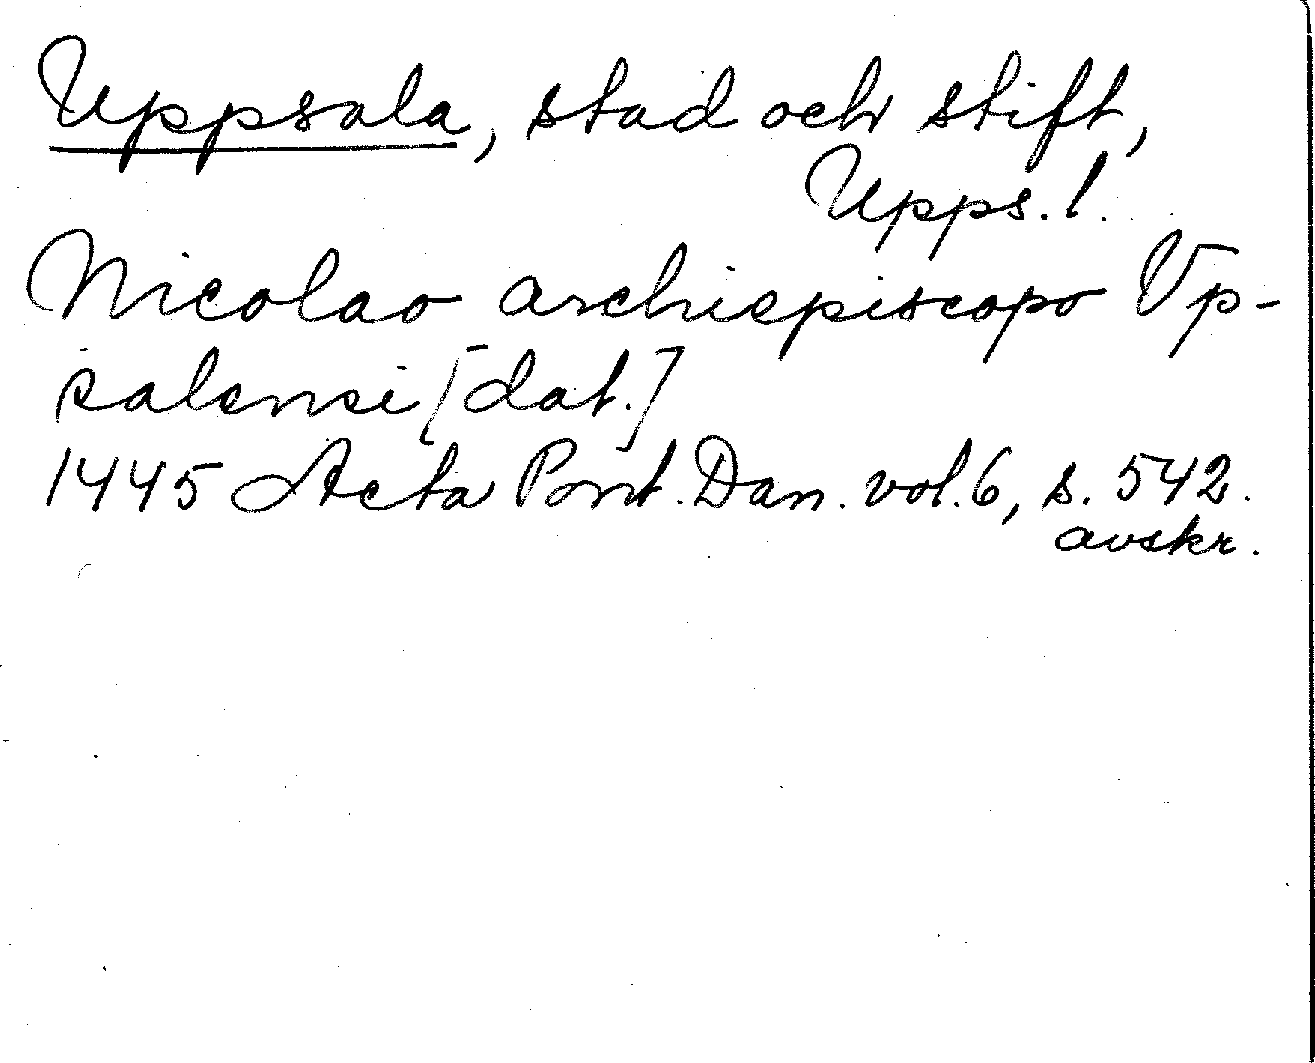 Uppsala, stad och stift,
Upps. l.
Nicolao archiepiscopo Vp-
salensi [dat.]
1445 Acta Pont. Dan. vol. 6, s. 542.
avskr.